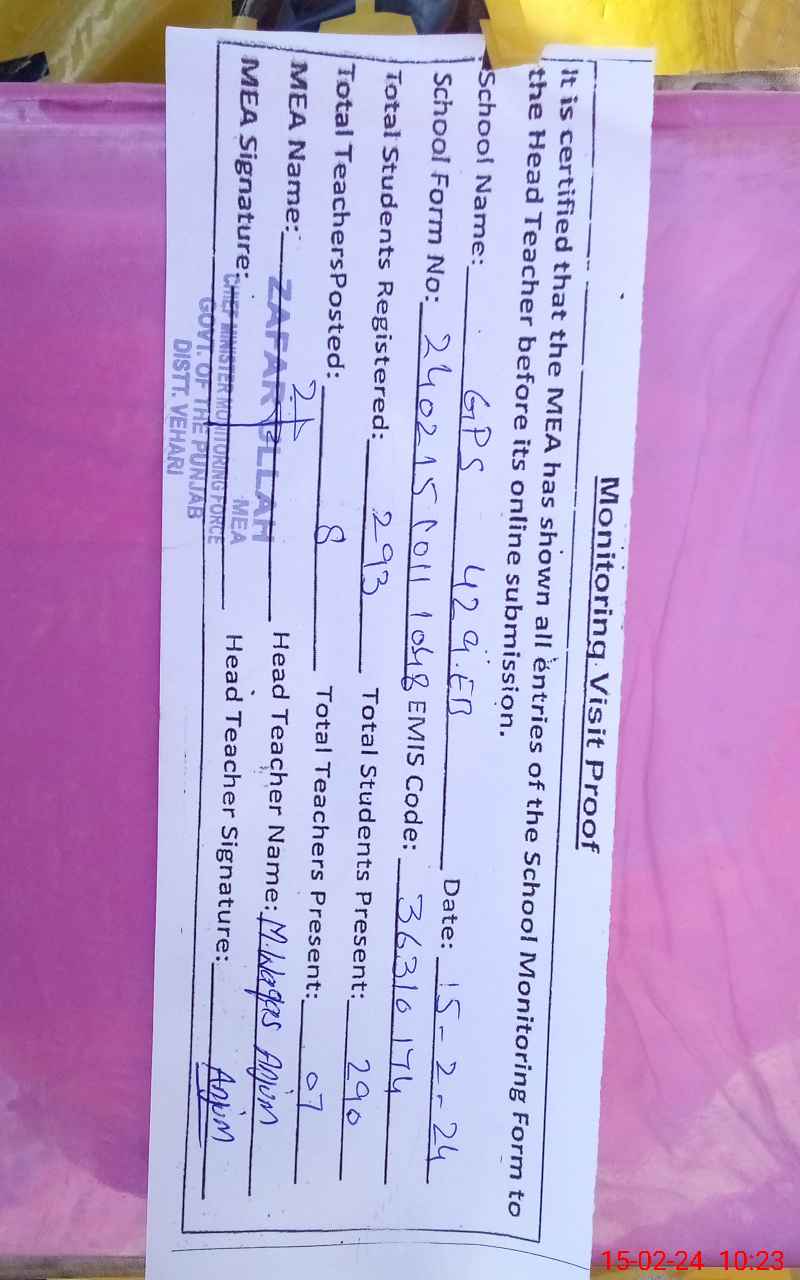 Monitoring Visit Proof
It is certified that the MEA has shown all entries of the School Monitoring Form to
the Head Teacher before its online submission.
School Name: GPS 429.EB Date: 15-2-24
School Form No: 240215 0011 1048 EMIS Code: 36310174
Total Students Registered: 293 Total Students Present: 290
Total TeachersPosted: 8 Total Teachers Present: 07
MEA Name: ZAFAR ULLAH Head Teacher Name: M.Waqas Anjum
MEA Signature: Head Teacher Signature: Anjum
MEA
CHIEF MINISTER MONITORING FORCE
GOVT. OF THE PUNJAB
DISTT. VEHARI
15-02-24 10:23